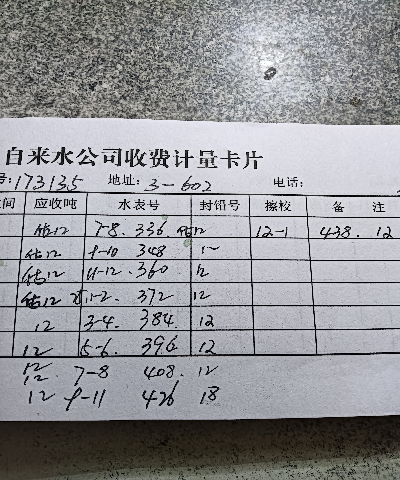 自来水公司收费计量卡片
号:173135 地址: 3-602 电话:
间 应收吨 水表号 封铅号 擦校 备 注
估12 7-8. 336 估12 12-1 438. 12
估12 9-10 348 12
估12 11-12. 360 12
估12 1-2. 372 12
12 3-4. 384. 12
12 5-6. 396 12
12. 7-8 408. 12
12 9-11 426 18